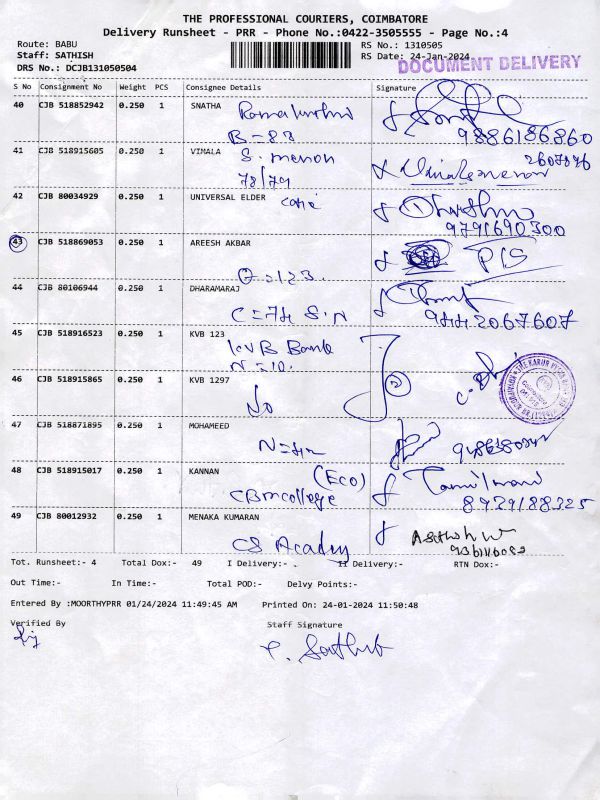 THE PROFESSIONAL COURIERS, COIMBATORE
Delivery Runsheet - PRR - Phone No.:0422-3505555 - Page No.:4
Route: BABU
Staff: SATHISH
DRS No.: DCJB131050504
RS No.: 1310505
RS Date: 24-Jan-2024
DOCUMENT DELIVERY
S No Consignment No Weight PCS Consignee Details Signature
40 CJB 518852942 0.250 1 SNATHA
B=83
9886186860
41 CJB 518915605 0.250 1 VIMALA S. menon
78/79
42 CJB 80034929 0.250 1 UNIVERSAL ELDER
9791690300
43 CJB 518869053 0.250 1 AREESH AKBAR
0=123. P1S
44 CJB 80106944 0.250 1 DHARAMARAJ
C=74 S.N 9442067607
45 CJB 518916523 0.250 1 KVB 123
KVB Bank
N=10.
46 CJB 518915865 0.250 1 KVB 1297
47 CJB 518871895 0.250 1 MOHAMEED
48 CJB 518915017 0.250 1 KANNAN (Eco) Tamilmani
CBM College
49 CJB 80012932 0.250 1 MENAKA KUMARAN
CS Academy
Tot. Runsheet:- 4 Total Dox:- 49 I Delivery:- II Delivery:- RTN Dox:-
Out Time:- In Time:- Total POD:- Delvy Points:-
Entered By :MOORTHYPRR 01/24/2024 11:49:45 AM Printed On: 24-01-2024 11:50:48
Verified By Staff Signature